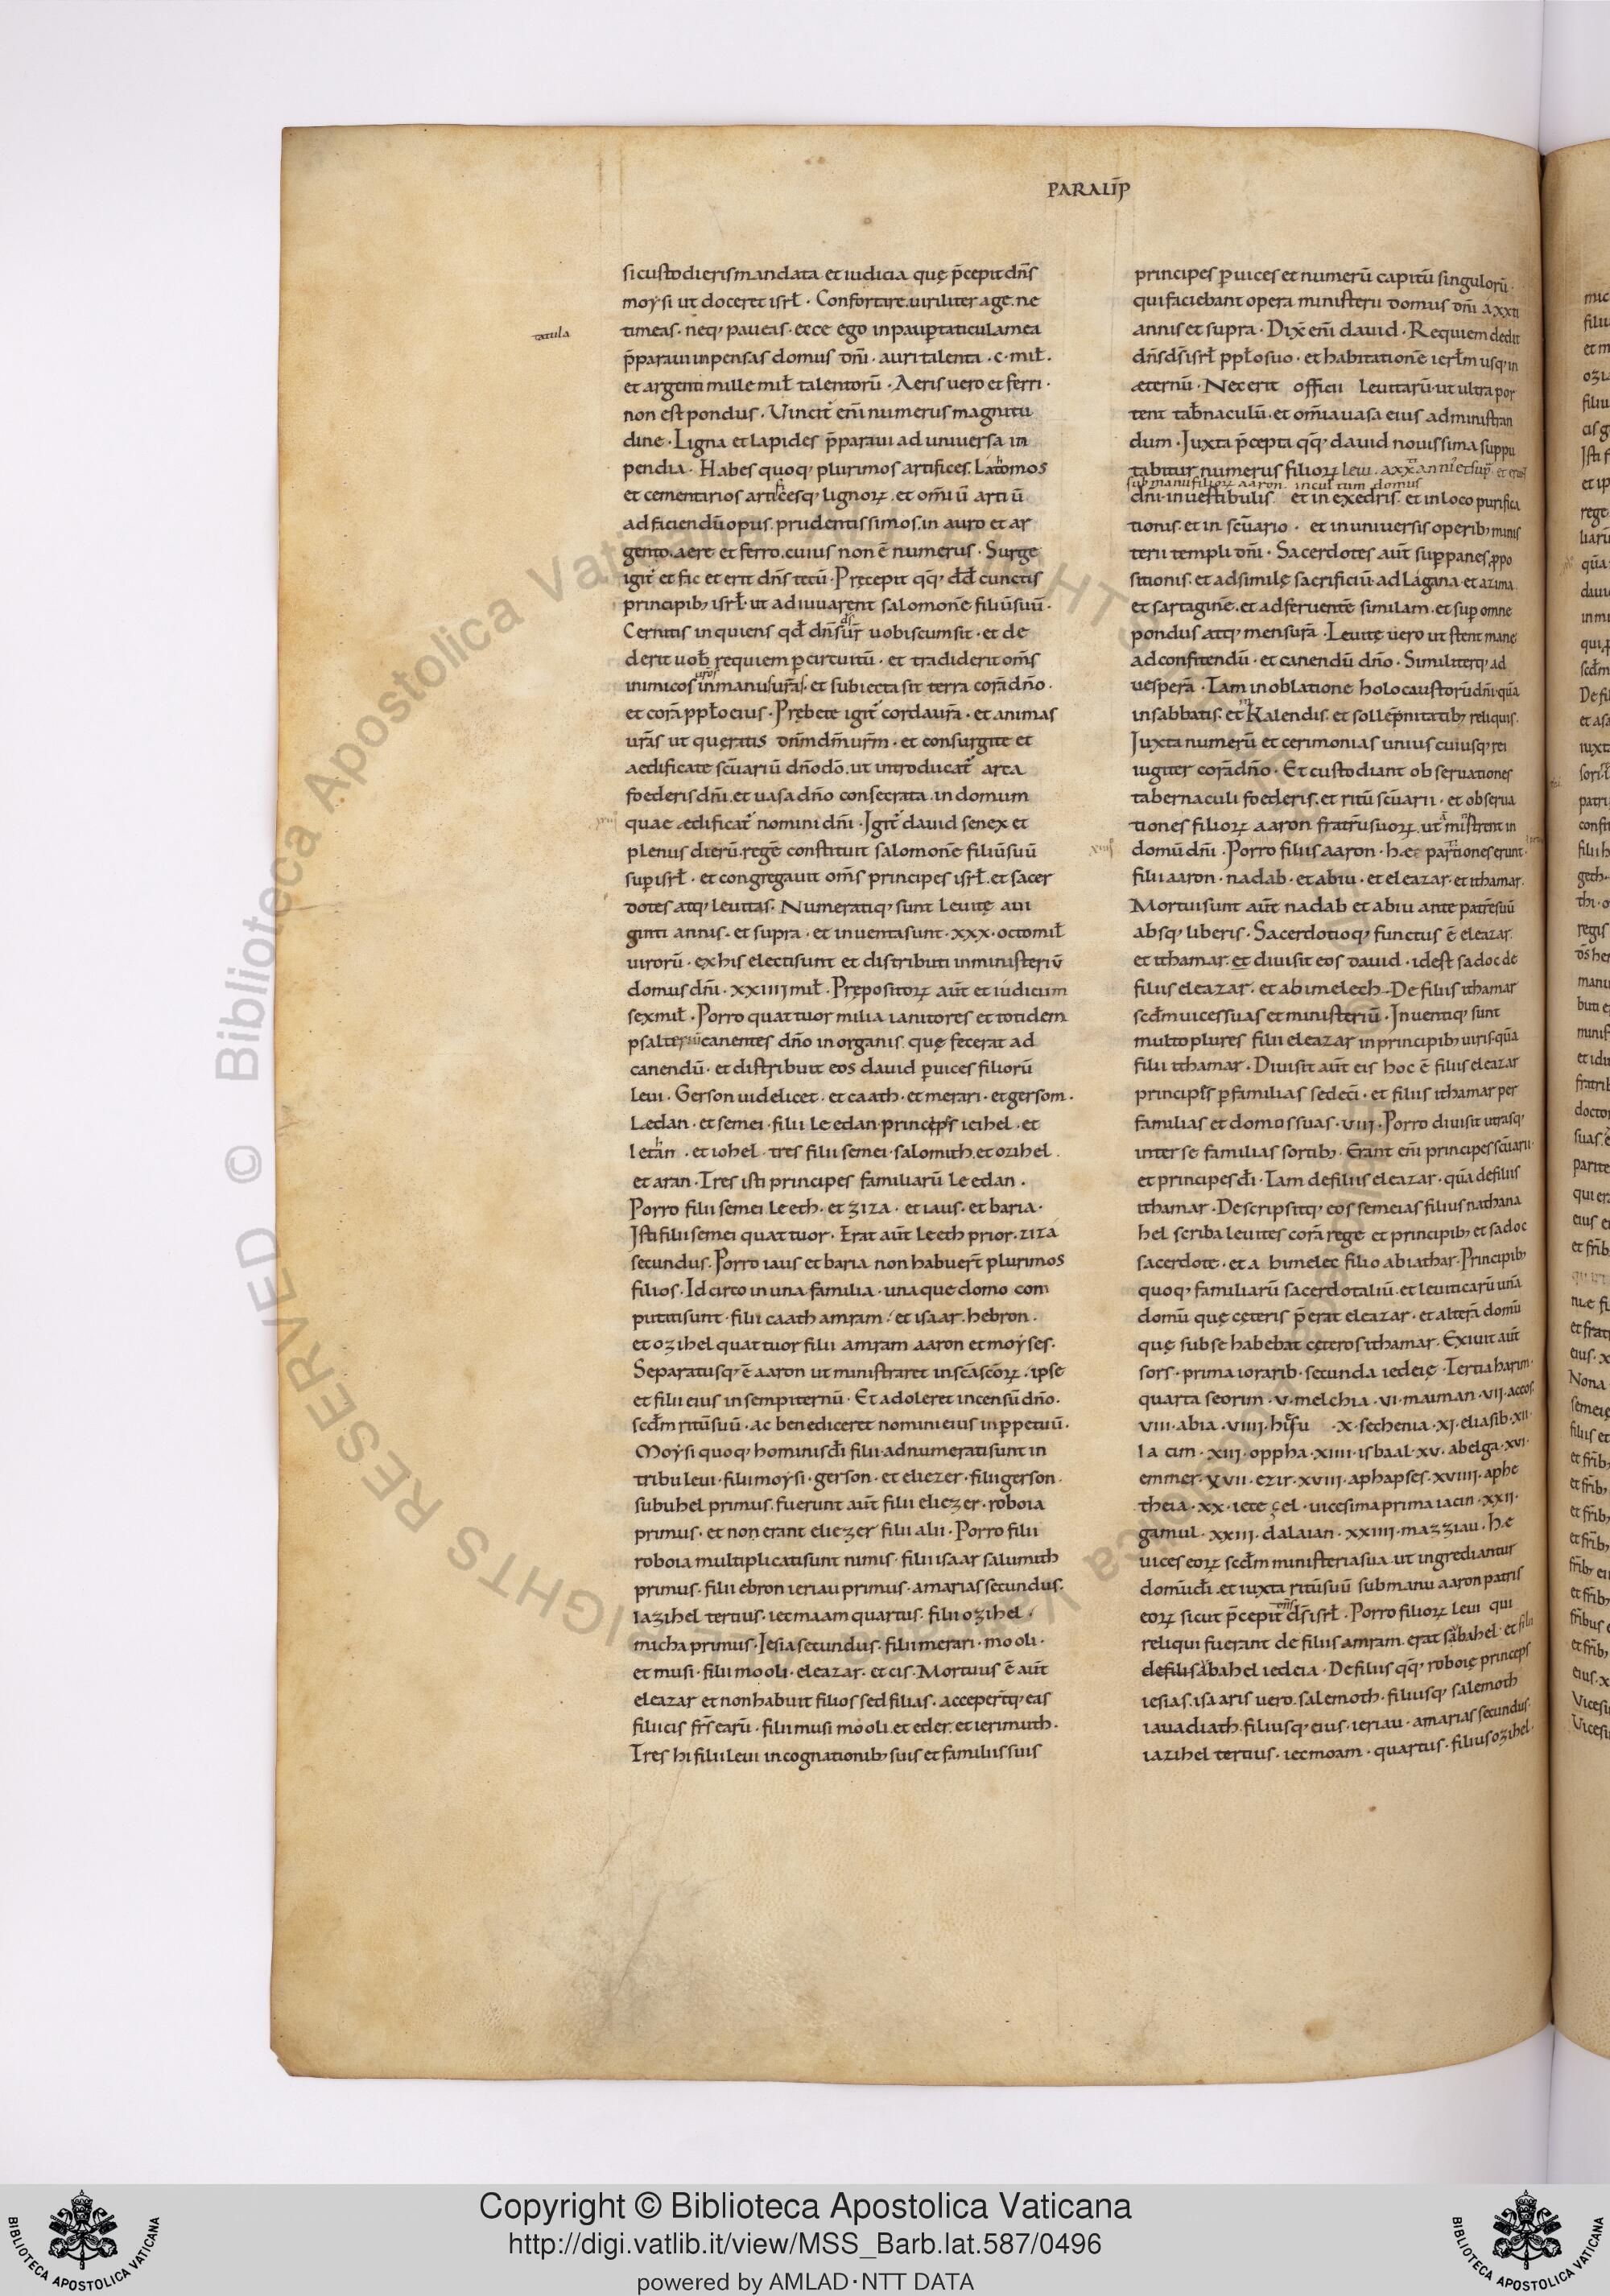 PARALIP̄
si custodieris mandata et iudicia quę p̄cepit dn̄s
moysi ut doceret isrl̄ · Confortare uiriliter age ne
timeas · neq; paueas · ecce ego in paup̱taticula mea
tatula
p̄paraui inpensas domus dn̄i · auri talenta · c · mil̄ ·
et argenti mille mil̄ talentorū · Aeris uero et ferri ·
non est pondus · Uincit̉ eni̅ numerus magnitu
dine · Ligna et lapides p̄paraui ad uniuersa in
pendia · Habes quoq; plurimos artifices. Latomos
et cementarios articesq; lignorꝝ . et omi̅ū artiū
ad faciendū opus . prudentissimos . in auro et ar
gento . aere et ferro . cuius non ē numerus · Surge
igit̉ et fac et erit dn̄s tecū · Pręcepit qq; dd̄ cunctis
principib; isrl̄ · ut adiuuarent salomonē filiū suū ·
Cernitis inquiens qd̄ dn̄s ds̄ ur̄ uobiscum sit · et de
derit uob̄ requiem p̱ circuitū · et tradiderit om̄s
inimicos in manus urās · et subiecta sit terra corā dn̄o ·
et corā ppl̄o eius · Prębete igit̉ corda ur̄a · et animas
urās ut queratis dn̄m dm̄ urm̄ · et consurgite et
aedificate scūariū dn̄o dō . ut introducat̉ arca
foederis dn̄i . et uasa dn̄o consecrata . in domum
quae ædificat̉ nomini dn̄i · Igit̉ dauid senex et
plenus dierū . regē constituit salomonē filiū suū
sup̱ isrl̄ · et congregauit om̄s principes isrl̄ . et sacer
dotes atq; leuitas · Numeratiq; sunt leuitę a ui
ginti annis · et supra · et inuenta sunt · xxx · octo mil̄
uirorū · ex his electi sunt et distributi in ministeriū
domus dn̄i · xxiiii mil̄ · Prępositorꝝ aūt et iudicum
sex mil̄ · Porro quattuor milia ianitores et totidem
psalteriū canentes dn̄o in organis . quę fecerat ad
canendū · et distribuit eos dauid p̱ uices filiorū
leui · Gerson uidelicet · et caath · et merari · et gersom ·
Ledan · et semei · filii leedan princeps ieihel · et
lethan · et iohel · tres filii semei · salomith . et ozihel .
et aran · Tres isti principes familiarū leedan ·
Porro filii semei leeth · et ziza · et iaus · et baria ·
Isti filii semei quattuor · Erat aūt leeth prior · ziza
secundus · Porro iaus et baria non habuer̄t plurimos
filios · Idcirco in una familia · unaque domo com
putati sunt · filii caath amram · et isaar . hebron ·
et ozihel quattuor filii amram aaron et moyses ·
Separatusq; ē aaron ut ministraret in scā scōrꝝ · ipse
et filii eius in sempiternū · Et adoleret incensū dn̄o ·
scdm̄ ritū suū · ac benediceret nomini eius in p̱petuū ·
Moysi quoq; hominis di̅ filii adnumerati sunt in
tribu leui · filii moysi · gerson · et eliezer · filii gerson ·
subuhel primus . fuerunt aūt filii eliezer · roboia
primus · et non erant eliezer filii alii · Porro filii
roboia multiplicati sunt nimis · filii isaar salumith
primus · filii ebron ieriau primus · amarias secundus ·
iazihel tertius · iecmaam quartus · filii ozihel ·
micha primus · Iesia secundus · filii merari · mooli ·
et musi · filii mooli · eleazar · et cis · Mortuus ē aūt
eleazar et non habuit filios sed filias · acceper̄tq; eas
filii cis fr̄s earū · filii musi mooli . et eder . et ierimuth ·
Tres hi filii leui in cognationib; suis et familiis suis
principes p̱ uices et numerū capitū singulorū ·
qui faciebant opera ministerii domus dn̄i a xxti
annis et supra · Dix̄ eni̅ dauid · Requiem dedit
dn̄s ds̄ isrl̄ ppl̄o suo · et habitationē ierl̄m usq; in
æternū · Nec erit officii leuitarū ut ultra por
tent tab̄naculū . et om̄ia uasa eius ad ministran
dum · Iuxta p̄cepta qq; dauid nouissima suppu
tabitur numerus filiorꝝ leui . a xx annis et sup̱ . et erunt
sub manu filiorꝝ aaron . in cultum domus
dn̄i in uestibulis . et in exedris . et in loco purifica
tionis . et in scūario · et in uniuersis operib; minis
terii templi dn̄i · Sacerdotes aūt sup̱ panes p̱po
sitionis . et ad similę sacrificiū ad lagana et azima
et sartaginē . et ad feruentē similam . et sup̱ omne
pondus atq; mensurā · Leuitę uero ut stent mane
ad confitendū · et canendū dn̄o · Similiterq; ad
uesperā · Tam in oblatione holocaustorū dn̄i quā
in sabbatis . et kalendis . et sollēpnitatib; reliquis .
Iuxta numerū et cerimonias unius cuiusq; rei
iugiter corā dn̄o · Et custodiant obseruationes
tabernaculi foederis . et ritū scūarii · et obserua
tiones filiorꝝ aaron fratr̄ suorꝝ . ut ministrent in
domū dn̄i · Porro filiis aaron · hae partiones erunt ·
filii aaron · nadab · et abiu · et eleazar · et ithamar ·
Mortui sunt aūt nadab et abiu ante patrē suū
absq; liberis · Sacerdotioq; functus ē eleazar
et ithamar . et diuisit eos dauid · idest sadoc de
filiis eleazar · et abimelech · De filiis ithamar
scdm̄ uices suas et ministeriū · Inuentiq; sunt
multo plures filii eleazar in principib; uiris · quā
filii ithamar · Diuisit aūt eis hoc ē filiis eleazar
principes p̱ familias sedeci̅ · et filiis ithamar per
familias et domos suas · viii · Porro diuisit utrasq;
inter se familias sortib; · Erant eni̅ principes scūarii
et principes di̅ · Tam de filiis eleazar · quā de filiis
ithamar · Descripsitq; eos semeias filius nathana
hel scriba leuites corā rege et principib; et sadoc
sacerdote · et abimelec filio abiathar · Principib;
quoq; familiarū sacerdotaliū . et leuiticarū unā
domū quę ceteris p̄erat eleazar · et alterā domū
quę sub se habebat ceteros ithamar · Exiuit aūt
sors · prima iorarib · secunda iedeię · Tertia harim ·
quarta seorim · v · melchia · vi · maiman · vii · accos ·
viii · abia · viiii · hiesu · x · sechenia · xi · eliasib · xii ·
iacim · xiii · oppha · xiiii · isbaal · xv · abelga · xvi ·
emmer · xvii · ezir · xviii · aphapses · xviiii · aphe
theia · xx · iete çel · uicesima prima iacin · xxii ·
gamul · xxiii · dalaian · xxiiii · mazziau · hę
uices eorꝝ scdm̄ ministeria sua ut ingrediantur
domū di̅ . et iuxta ritū suū sub manu aaron patris
eorꝝ sicut p̄cepit dn̄s ds̄ isrl̄ · Porro filiorꝝ leui qui
reliqui fuerant de filiis amram . erat subahel · et filii
de filiis subahel iedeia · De filiis qq; roboię princeps
iesias . isaaris uero . salemoth · filiusq; salemoth
iauadiath . filiusq; eius · ieriau · amarias secundus
iazihel tertius · iecmoam · quartus · filius ozihel ·
Copyright © Biblioteca Apostolica Vaticana
http://digi.vatlib.it/view/MSS_Barb.lat.587/0496
powered by AMLAD·NTT DATA
BIBLIOTECA APOSTOLICA VATICANA
BIBLIOTECA APOSTOLICA VATICANA
© Biblioteca Apostolica Vaticana ALL RIGHTS RESERVED